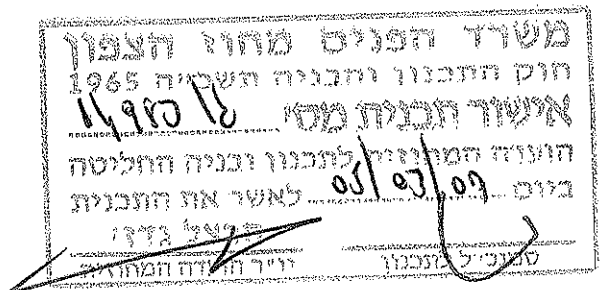 משרד הפנים מחוז הצפון
חוק התכנון והבניה תשכ"ה 1965
אישור תכנית מס'
הועדה המחוזית לתכנון ובניה החליטה
ביום 05/03/07 לאשר את התכנית
סמנכ"ל לתכנון
יו"ר הועדה המחוזית